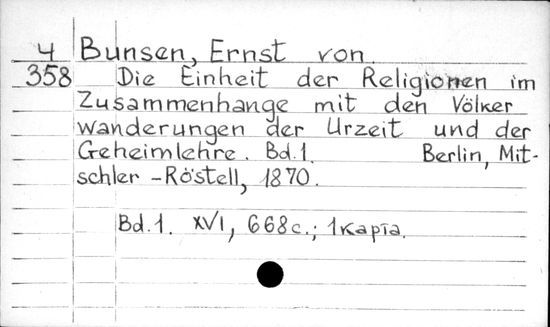 4 Bunsen, Ernst von
358 Die Einheit der Religionen im
Zusammenhange mit den Völker
wanderungen der Urzeit und der
Geheimlehre. Bd.1. Berlin, Mit-
schler -Röstell, 1870.
Bd.1. XVI, 668c.; 1карта.